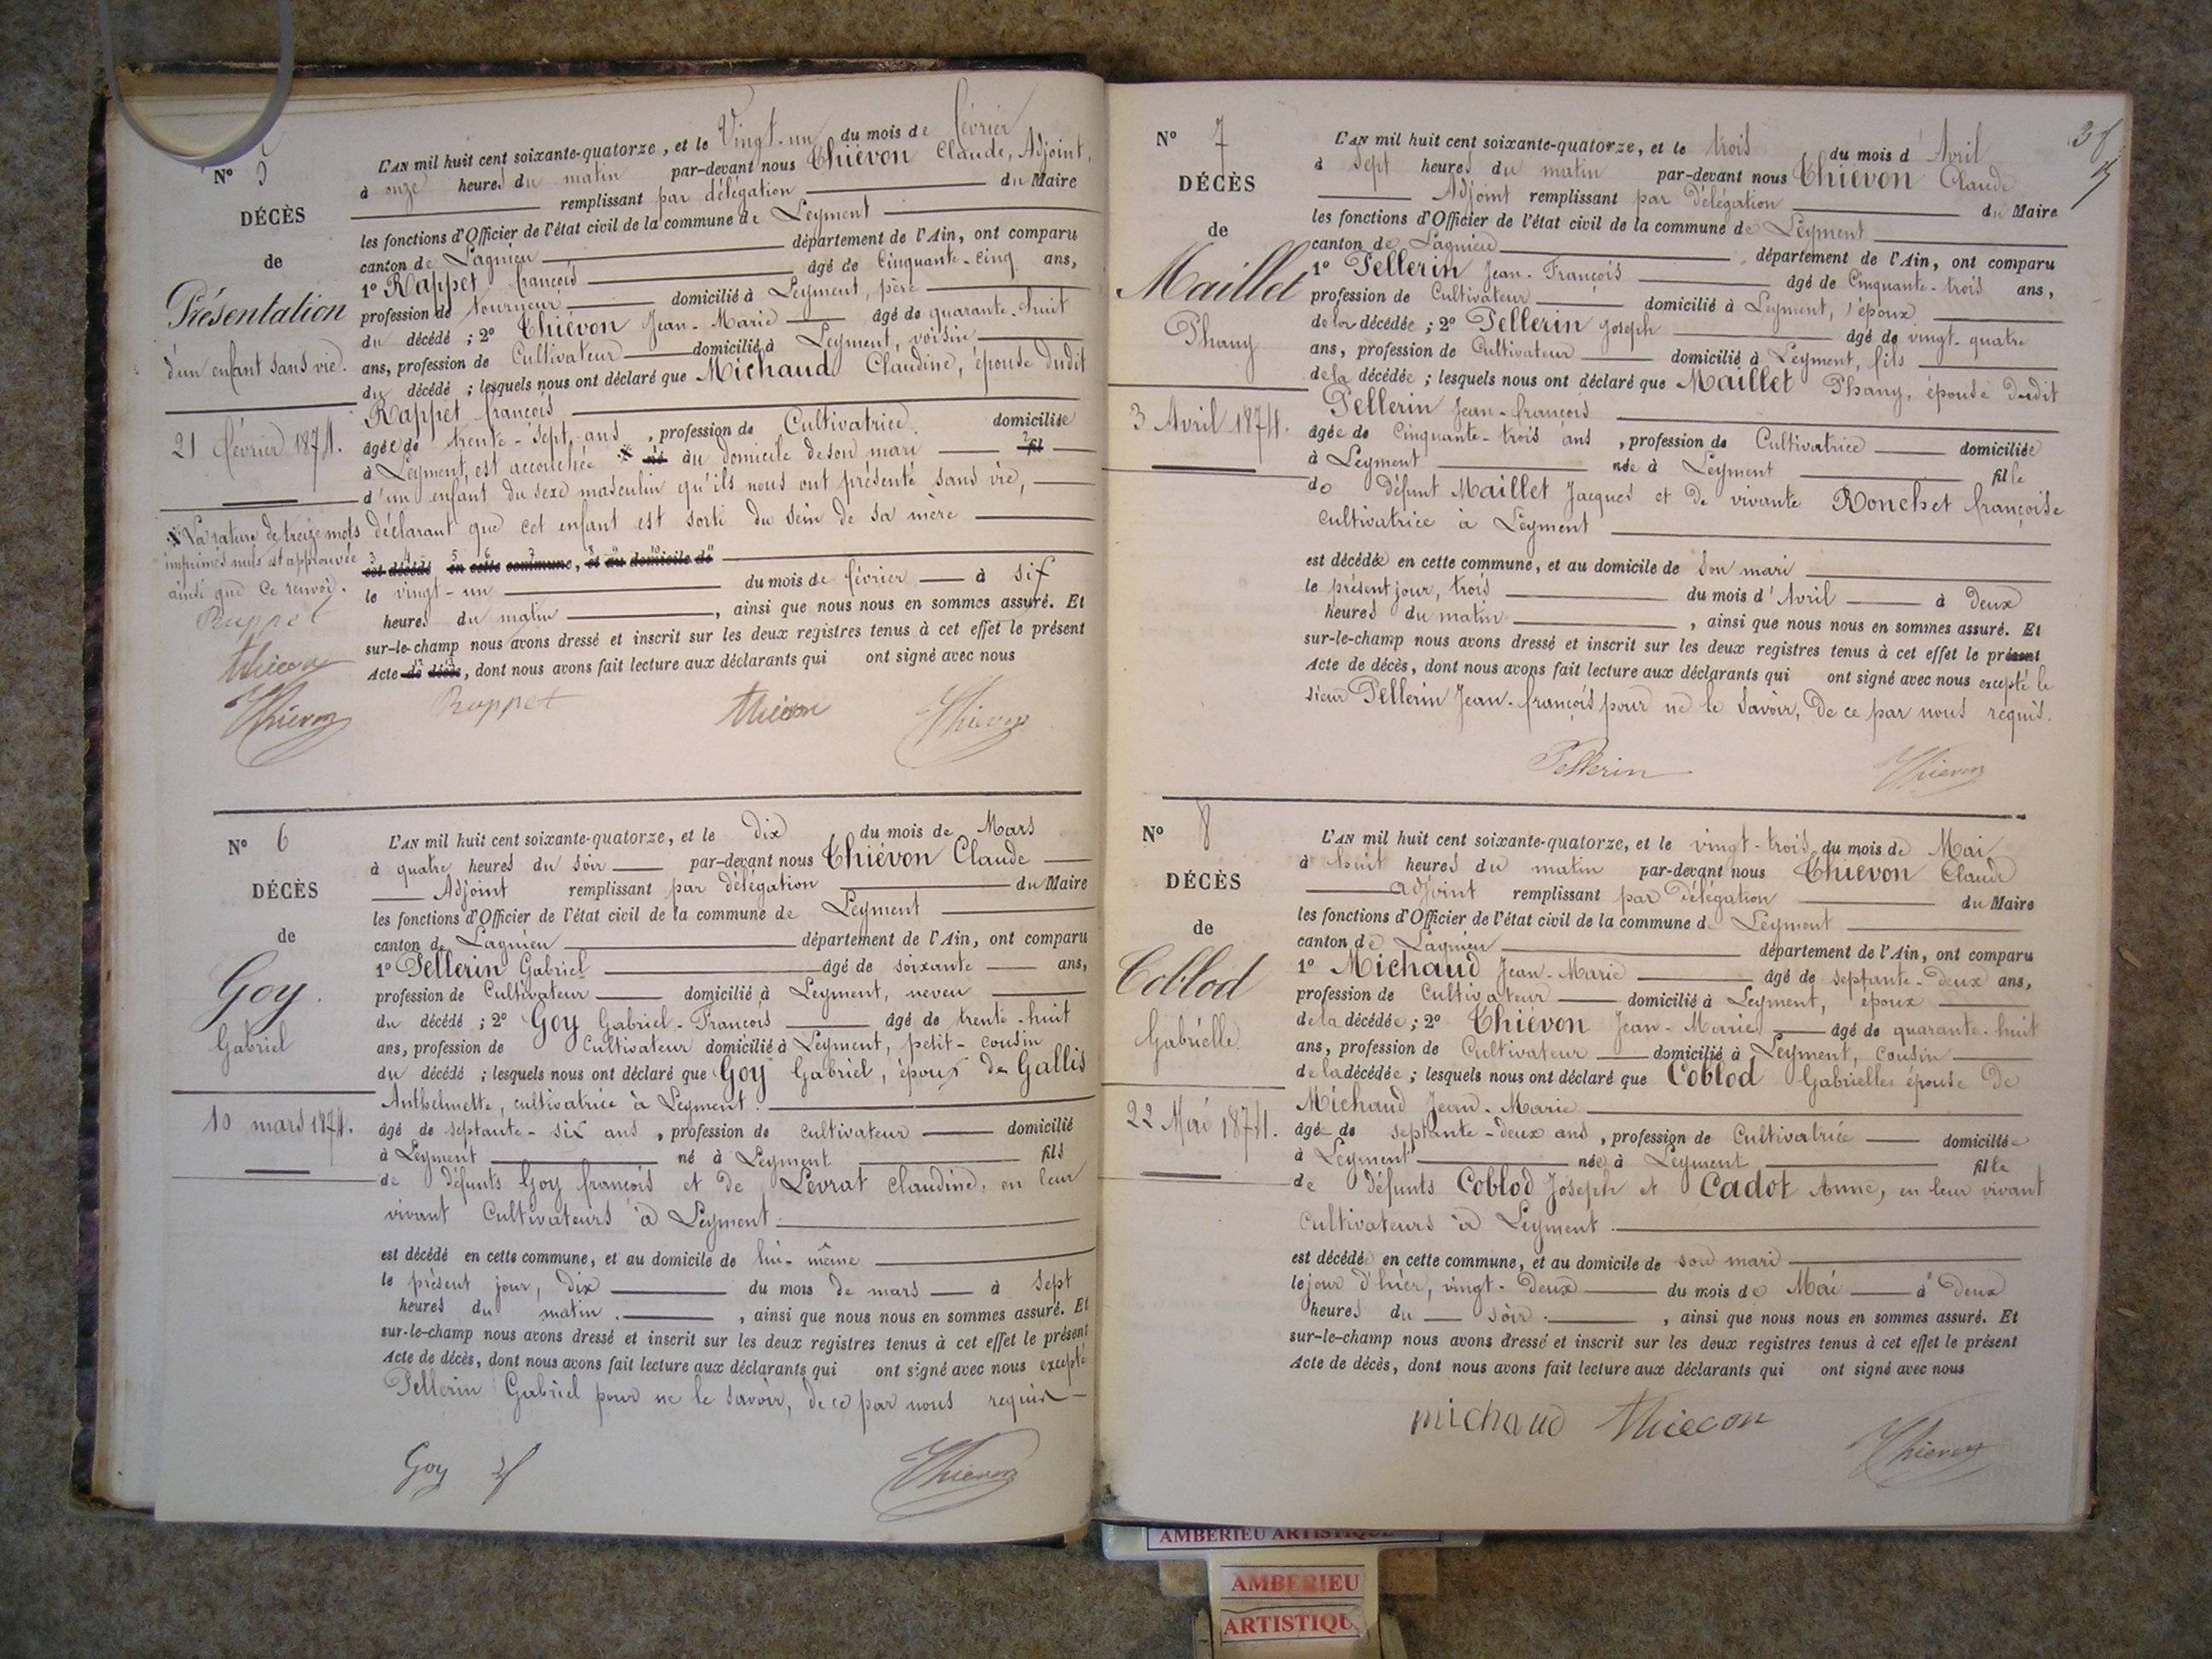 N° 5
DÉCÈS
de
Présentation
d'un enfant sans vie.
21 février 1874.
L'AN mil huit cent soixante-quatorze, et le Vingt-un du mois de février
à onze heures du matin par-devant nous Thiévon Claude, Adjoint,
remplissant par délégation du Maire
les fonctions d'Officier de l'état civil de la commune de Leyment
canton de Lagnieu département de l'Ain, ont comparu
1° Rappet françois âgé de Cinquante-cinq ans,
profession de tourneur domicilié à Leyment, père
du décédé ; 2° Thiévon Jean-Marie âgé de quarante-huit
ans, profession de Cultivateur domicilié à Leyment, voisin
du décédé ; lesquels nous ont déclaré que Michaud Claudine, épouse dudit
Rappet françois
âgée de trente-sept ans, profession de Cultivatrice domiciliée
à Leyment, est accouchée né au domicile de son mari fil
d'un enfant du sexe masculin qu'ils nous ont présenté sans vie,
déclarant que cet enfant est sorti du sein de sa mère
est décédé en cette commune, et au domicile de
le vingt-un du mois de février à six
heures du matin, ainsi que nous nous en sommes assuré. Et
sur-le-champ nous avons dressé et inscrit sur les deux registres tenus à cet effet le présent
Acte de décès, dont nous avons fait lecture aux déclarants qui ont signé avec nous
La rature de treize mots
imprimés nuls est approuvée
ainsi que ce renvoi.
Rappet
thiecon
Thievon
Rappet thiecon Thievon
N° 6
DÉCÈS
de
Goy
Gabriel
10 mars 1874.
L'AN mil huit cent soixante-quatorze, et le dix du mois de Mars
à quatre heures du soir par-devant nous Thiévon Claude
Adjoint remplissant par délégation du Maire
les fonctions d'Officier de l'état civil de la commune de Leyment
canton de Lagnieu département de l'Ain, ont comparu
1° Pellerin Gabriel âgé de soixante ans,
profession de Cultivateur domicilié à Leyment, neveu
du décédé ; 2° Goy Gabriel-François âgé de trente-huit
ans, profession de Cultivateur domicilié à Leyment, petit-cousin
du décédé ; lesquels nous ont déclaré que Goy Gabriel, époux de Gallis
Anthelmette, cultivatrice à Leyment.
âgé de septante-six ans, profession de cultivateur domicilié
à Leyment né à Leyment fils
de défunts Goy françois et de Levrat Claudine, en leur
vivant Cultivateurs à Leyment.
est décédé en cette commune, et au domicile de lui-même
le présent jour, dix du mois de mars à sept
heures du matin., ainsi que nous nous en sommes assuré. Et
sur-le-champ nous avons dressé et inscrit sur les deux registres tenus à cet effet le présent
Acte de décès, dont nous avons fait lecture aux déclarants qui ont signé avec nous excepté
Pellerin Gabriel pour ne le savoir, de ce par nous requis
Goy Thievon
N° 7
DÉCÈS
de
Maillet
Phany
3 Avril 1874.
L'AN mil huit cent soixante-quatorze, et le trois du mois d'Avril
à sept heures du matin par-devant nous Thiévon Claude
Adjoint remplissant par délégation du Maire
les fonctions d'Officier de l'état civil de la commune de Leyment
canton de Lagnieu département de l'Ain, ont comparu
1° Pellerin Jean-François âgé de Cinquante-trois ans,
profession de Cultivateur domicilié à Leyment, l'époux
de la décédée ; 2° Pellerin Joseph âgé de vingt-quatre
ans, profession de Cultivateur domicilié à Leyment, fils
de la décédée ; lesquels nous ont déclaré que Maillet Phany, épouse dudit
Pellerin Jean-françois
âgée de Cinquante-trois ans, profession de Cultivatrice domiciliée
à Leyment née à Leyment fille
de défunt Maillet Jacques et de vivante Ronchet françoise
cultivatrice à Leyment
est décédée en cette commune, et au domicile de son mari
le présent jour, trois du mois d'Avril à deux
heures du matin, ainsi que nous nous en sommes assuré. Et
sur-le-champ nous avons dressé et inscrit sur les deux registres tenus à cet effet le présent
Acte de décès, dont nous avons fait lecture aux déclarants qui ont signé avec nous excepté le
sieur Pellerin Jean-françois pour ne le savoir, de ce par nous requis.
Pellerin Thievon
N° 8
DÉCÈS
de
Coblod
Gabrielle
22 Mai 1874.
L'AN mil huit cent soixante-quatorze, et le vingt-trois du mois de Mai
à huit heures du matin par-devant nous Thiévon Claude
adjoint remplissant par délégation du Maire
les fonctions d'Officier de l'état civil de la commune de Leyment
canton de Lagnieu département de l'Ain, ont comparu
1° Michaud Jean-Marie âgé de septante-deux ans,
profession de Cultivateur domicilié à Leyment, époux
de la décédée ; 2° Thiévon Jean-Marie âgé de quarante-huit
ans, profession de Cultivateur domicilié à Leyment, cousin
de la décédée ; lesquels nous ont déclaré que Coblod Gabrielle, épouse de
Michaud Jean-Marie
âgée de septante-deux ans, profession de Cultivatrice domiciliée
à Leyment née à Leyment fille
de défunts Coblod Joseph et Cadot Anne, en leur vivant
Cultivateurs à Leyment.
est décédée en cette commune, et au domicile de son mari
le jour d'hier, vingt-deux du mois de Mai à deux
heures du soir., ainsi que nous nous en sommes assuré. Et
sur-le-champ nous avons dressé et inscrit sur les deux registres tenus à cet effet le présent
Acte de décès, dont nous avons fait lecture aux déclarants qui ont signé avec nous
michaud thiecon Thievon
AMBERIEU ARTISTIQUE
AMBERIEU
ARTISTIQU